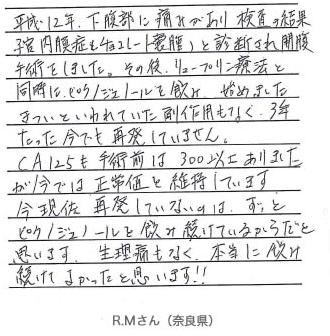 平成12年、下腹部に痛みがあり検査の結果
子宮内膜症(チョコレート嚢腫)と診断され開腹
手術をしました。その後、リュープリン療法と
同時にピクノジェノールを飲み始めました
きついといわれていた副作用もなく、3年
たった今でも再発していません。
CA125も手術前は300以上ありました
が今では正常値を維持しています
今現在 再発していないのは、ずっと
ピクノジェノールを飲み続けているからだと
思います。生理痛もなく、本当に飲み
続けてよかったと思います!!
R.Mさん(奈良県)